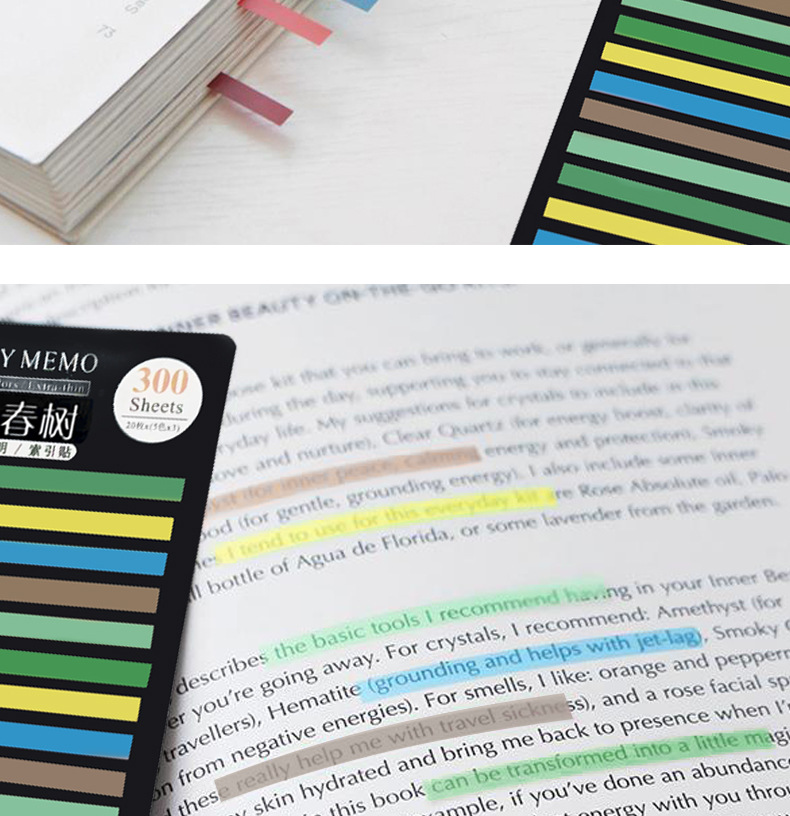 73
Y MEMO
300
Sheets
20枚x(5色x3)
Extra-thin
春树
明 / 索引贴
INNER BEAUTY ON-THE-GO
kit that you can bring to work, or generally for
during the day, supporting you to stay connected to that
life. My suggestions for crystals to include in this
and nurture), Clear Quartz (for energy boost, clarity of
(for inner peace, calming energy and protection), Smoky
(for gentle, grounding energy). I also include some inner
I tend to use for this everyday kit are Rose Absolute oil, Palo
bottle of Agua de Florida, or some lavender from the garden.
describes the basic tools I recommend having in your Inner Be
er you're going away. For crystals, I recommend: Amethyst (for
travellers), Hematite (grounding and helps with jet-lag), Smoky
n from negative energies). For smells, I like: orange and pepperm
these really help me with travel sickness), and a rose facial sp
y skin hydrated and bring me back to presence when I'
this book can be transformed into a little magi
example, if you've done an abundanc
energy with you throu